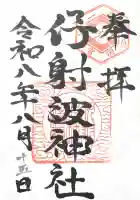 奉拝
伊射波神社
令和八年八月十五日